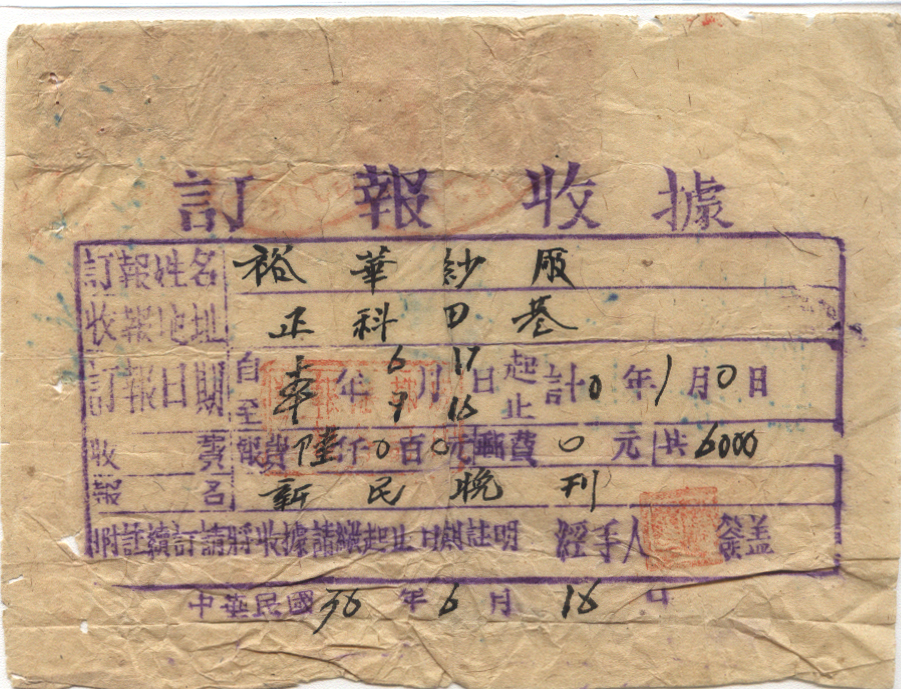 訂報收據
訂報姓名 裕華紗厰
收報地址 正科田巷
訂報日期 自 年 6月17日起 計0年1月0日
至 年 月16日止
收費 報費陸仟0百0元 費0元 共6000
報名 新民晚刊
附註續訂請將收據請繳起止日 註明 經手人 簽盖
中華民國36年6月16日